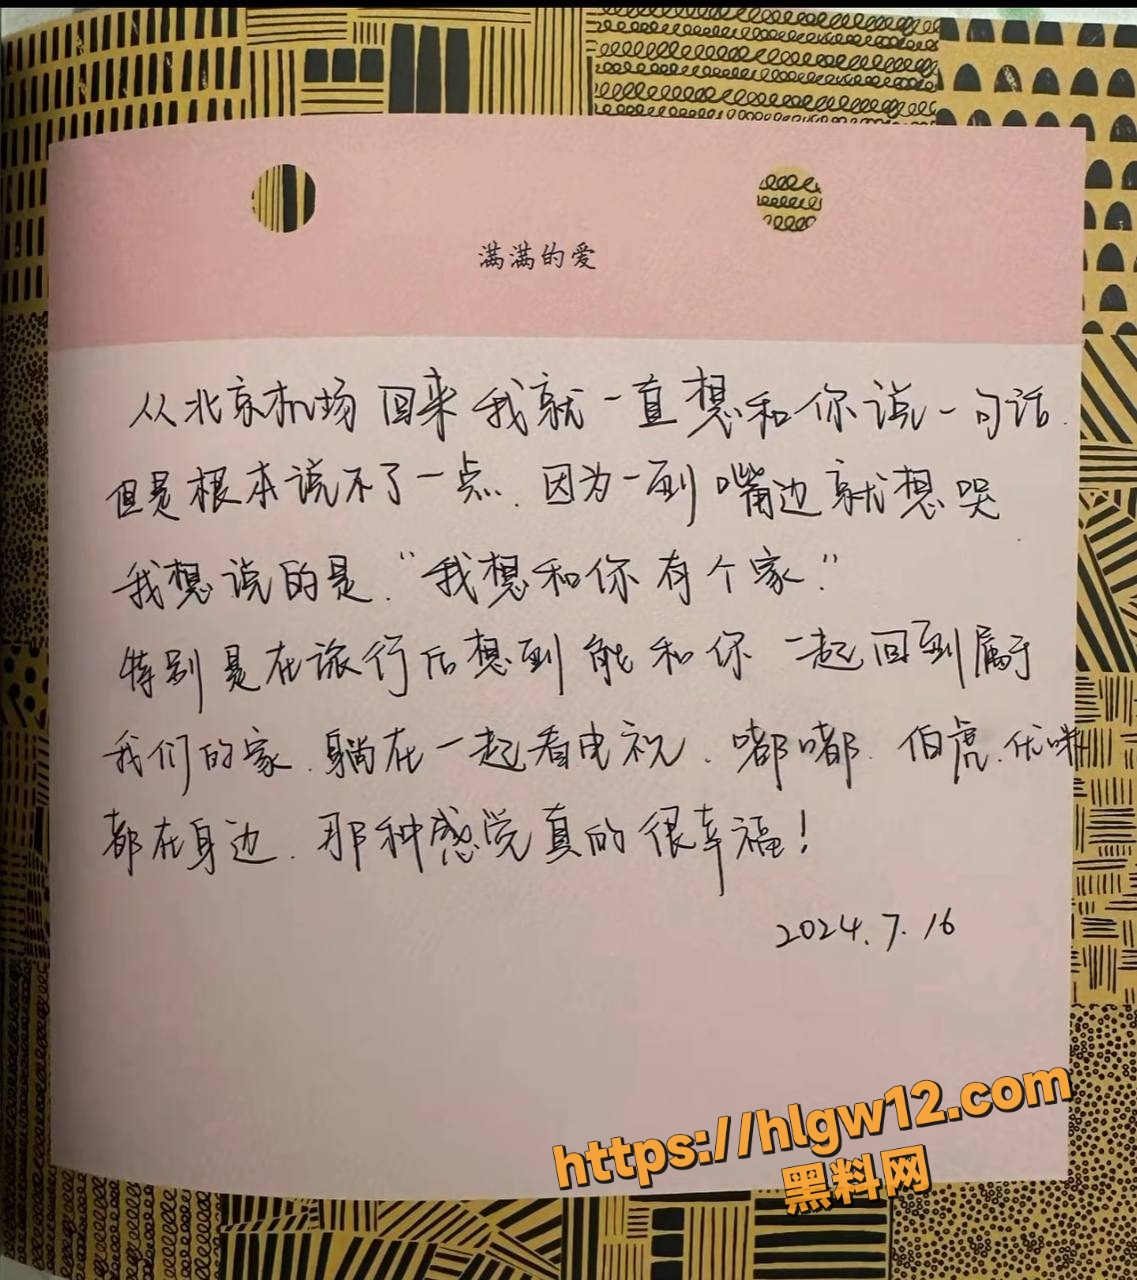 满满的爱
从北京机场回来我就一直想和你说一句话.
但是根本说不了一点.因为一到嘴边就想哭
我想说的是.“我想和你有个家.”
特别是在旅行后想到能和你一起回到属于
我们的家.躺在一起看电视.嘟嘟.伯虎.优咪
都在身边.那种感觉真的很幸福!
2024.7.16
https://hlgw12.com
黑料网